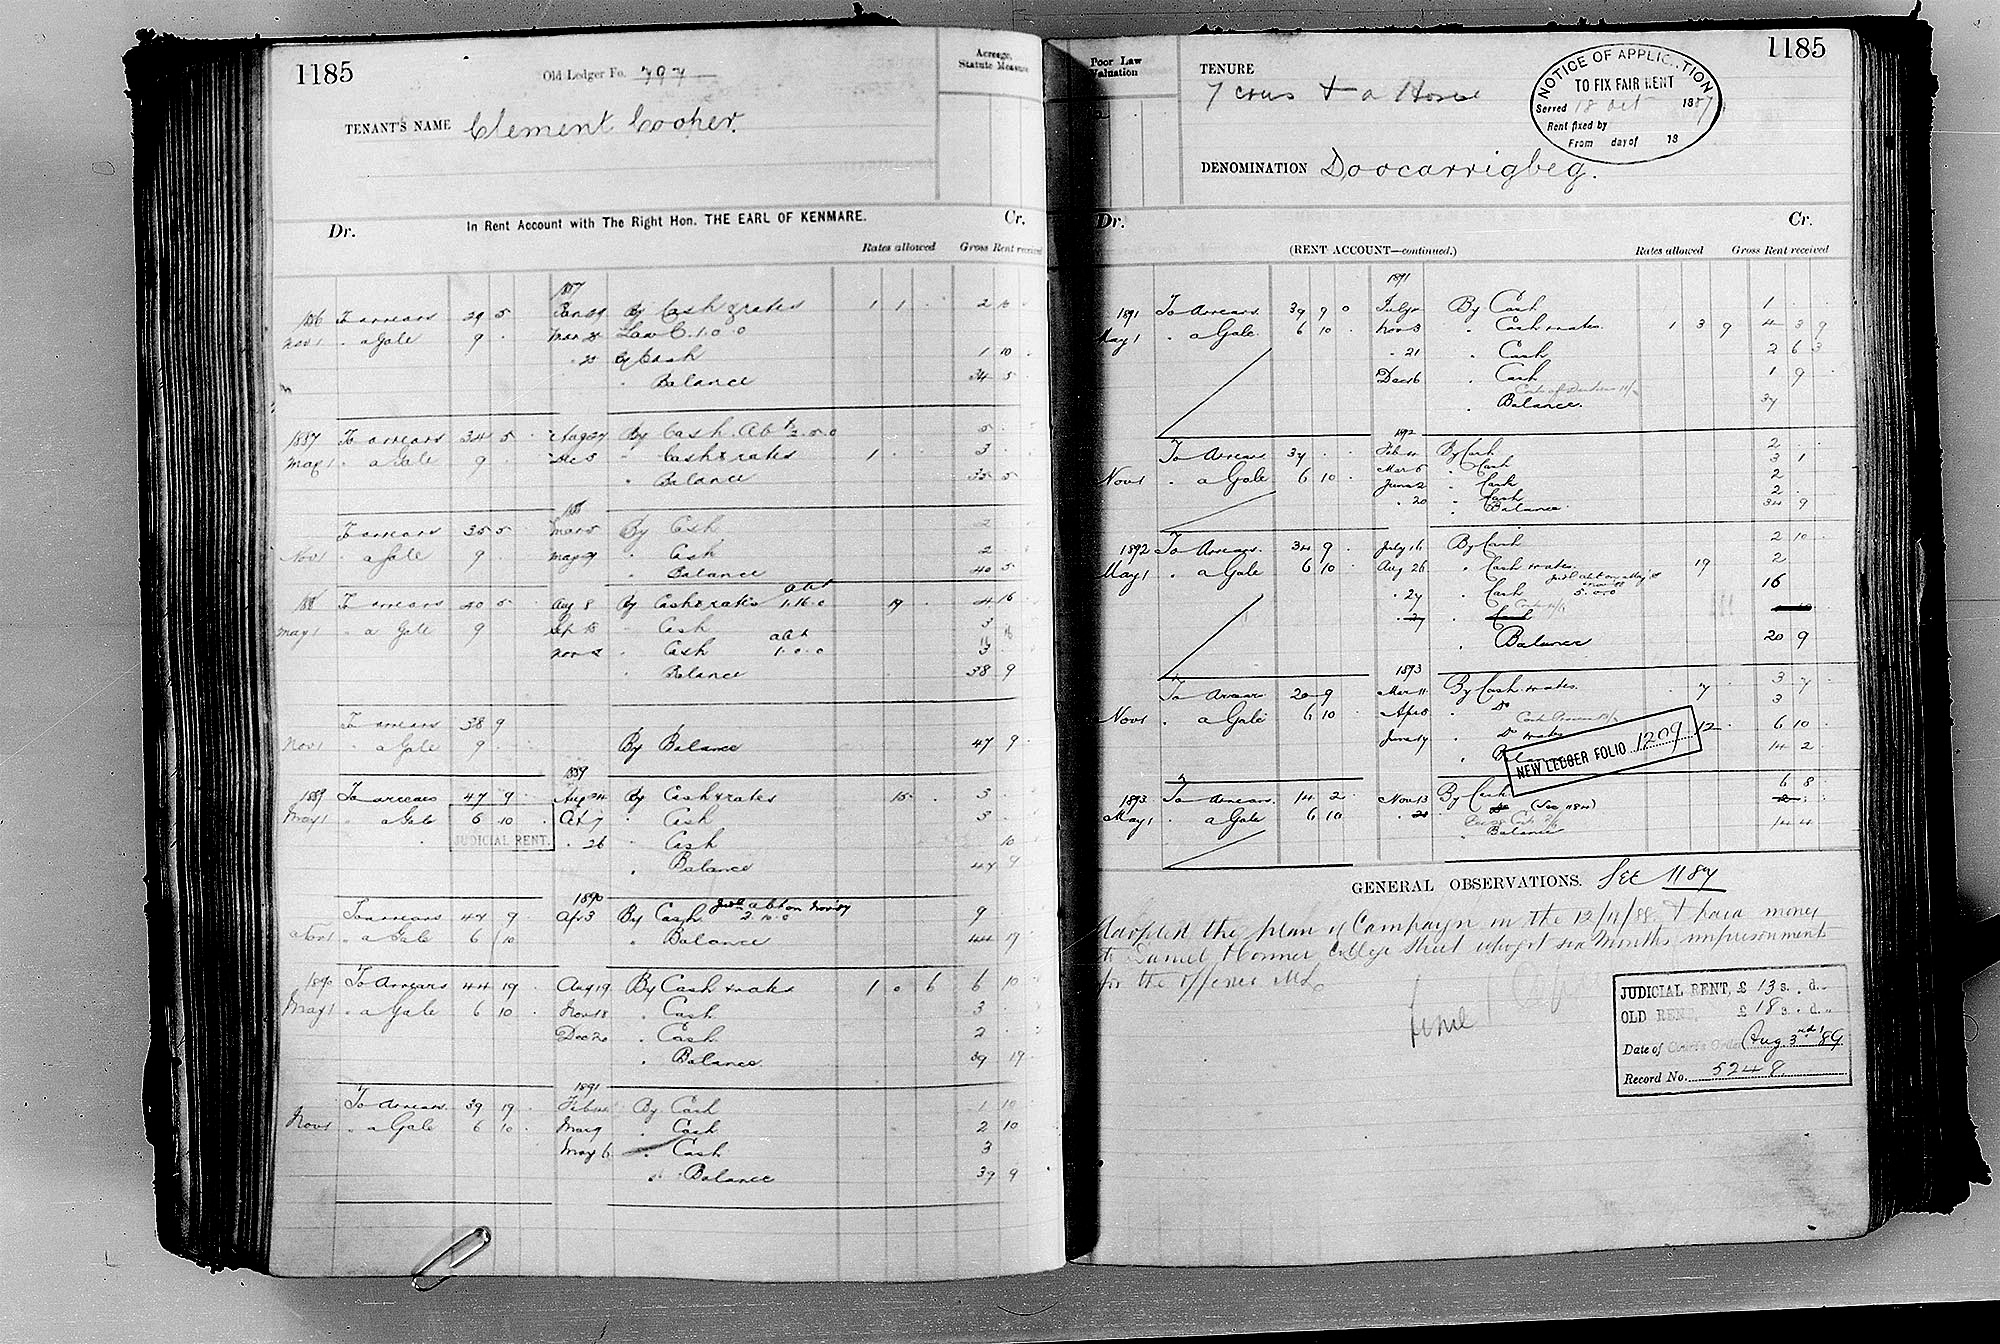 1185
Old Ledger Fo. 797
Acreage, Statute Measure
TENANT'S NAME Clement Cooper.
Dr. In Rent Account with The Right Hon. THE EARL OF KENMARE. Cr.
Rates allowed Gross Rent received
1887
1886 To arrears 29 5 Jan 29 By Cash & rates 1 1 2 10
Nov 1 " a Gale 9 Mar 25 Law C. 1.0.0
" 25 By Cash 1 10
" Balance 34 5
1887 To arrears 34 5 Aug 27 By Cash Abt 2.5.0 5
May 1 " a Gale 9 Dec 5 " Cash & rates 1 3
" Balance 35 5
188
To arrears 35 5 Mar 5 By Cash 2
Nov 1 " a Gale 9 May 29 " Cash 2
" Balance 40 5
188 To arrears 40 5 Aug 8 By Cash & rates abt 1.16.0 19 4 16
May 1 " a Gale 9 Sep 15 " Cash 3
Nov " Cash abt 1.0.0 3
" Balance 38 9
To arrears 38 9
Nov 1 " a Gale 9 By Balance 47 9
1889
1889 To arrears 47 9 Aug 24 By Cash & rates 15 3
May 1 " a Gale 6 10 Oct 7 " Cash 3
JUDICIAL RENT. " 26 " Cash 10
" Balance 47 9
1890
To arrears 47 9 Apr 3 By Cash Judl abt on Nov 89 2.10.0 9
Nov 1 " a Gale 6 10 " Balance 44 19
1890 To Arrears 44 19 Aug 19 By Cash & rates 1 0 6 6 10
May 1 " a Gale 6 10 Nov 18 " Cash 3
Dec 20 " Cash 2
" Balance 39 19
1891
To Arrears 39 19 Feb By Cash 1 10
Nov 1 " a Gale 6 10 Mar 9 " Cash 2 10
May 6 " Cash 3
" Balance 39 9
Poor Law Valuation
TENURE
7 cows & a Horse
1185
NOTICE OF APPLICATION
TO FIX FAIR RENT
Served 18 Oct 1887
Rent fixed by
From day of 18
DENOMINATION Doocarrigbeg.
Dr. Cr.
(RENT ACCOUNT—continued.) Rates allowed Gross Rent received
1891
1891 To Arrears 39 9 0 July By Cash 1
May 1 " a Gale 6 10 Nov 3 " Cash & rates 1 3 9 4 3 9
" 21 " Cash 2 6 3
Dec 16 " Cash 1 9
" Balance. 37
1892
To Arrears 37 Feb By Cash 2
Nov 1 " a Gale 6 10 Mar 5 " Cash 3 1
June 2 " Cash 2
" 20 " Cash 2
" Balance. 34 9
1892 To Arrears. 34 9 July 16 By Cash 2 10
May 1 " a Gale 6 10 Aug 26 " Cash & rates 19 2
" 27 " Cash 5.0.0 16
" 27 " Cash
" Balance 20 9
1893
To Arrears 20 9 Mar 11 By Cash & rates. 7 3 7
Nov 1 " a Gale 6 10 Apr 8 " Do 3
June 17 " Do & rates 12 6 10
" Bal 14 2
NEW LEDGER FOLIO 1209
1893 To Arrears. 14 2 Nov 13 By Cash 6 8
May 1 " a Gale 6 10 " Do (See 1184)
" Balance 14 4
GENERAL OBSERVATIONS. See 1187
Adopted the plan of Campaign on the 12/11/88 & paid money
to Daniel O'Connor College Street who got six Months imprisonment
for the offence
JUDICIAL RENT, £ 13 s. . d. .
OLD RENT, £ 18 s. . d. .
Date of Court's Order Aug 3rd 89
Record No. 5248